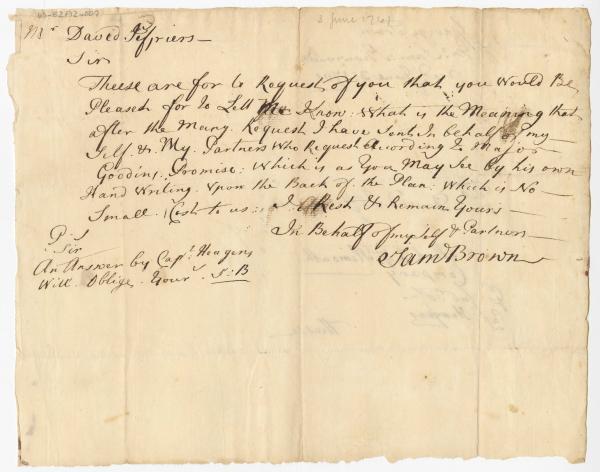 3 June 1761
Mr David Jeffriers
Sir
Theese are for to Request of you that you Would Be
Pleased for to Lett Me Know What is the Meaning that
after the Many Request I have Sent In behalf of my
Self & My Partners Who Request according to Major
Goodins Promise: Which is as You May See by his own
Hand Writing Upon the Back of the Plan: Which is No
Small Cost to us: I Rest & Remain Yours
In Behalf of my Self & Partners
Sam Brown
P S
Sir
An Answer by Capt Hoagens
Will Oblige Your S:B